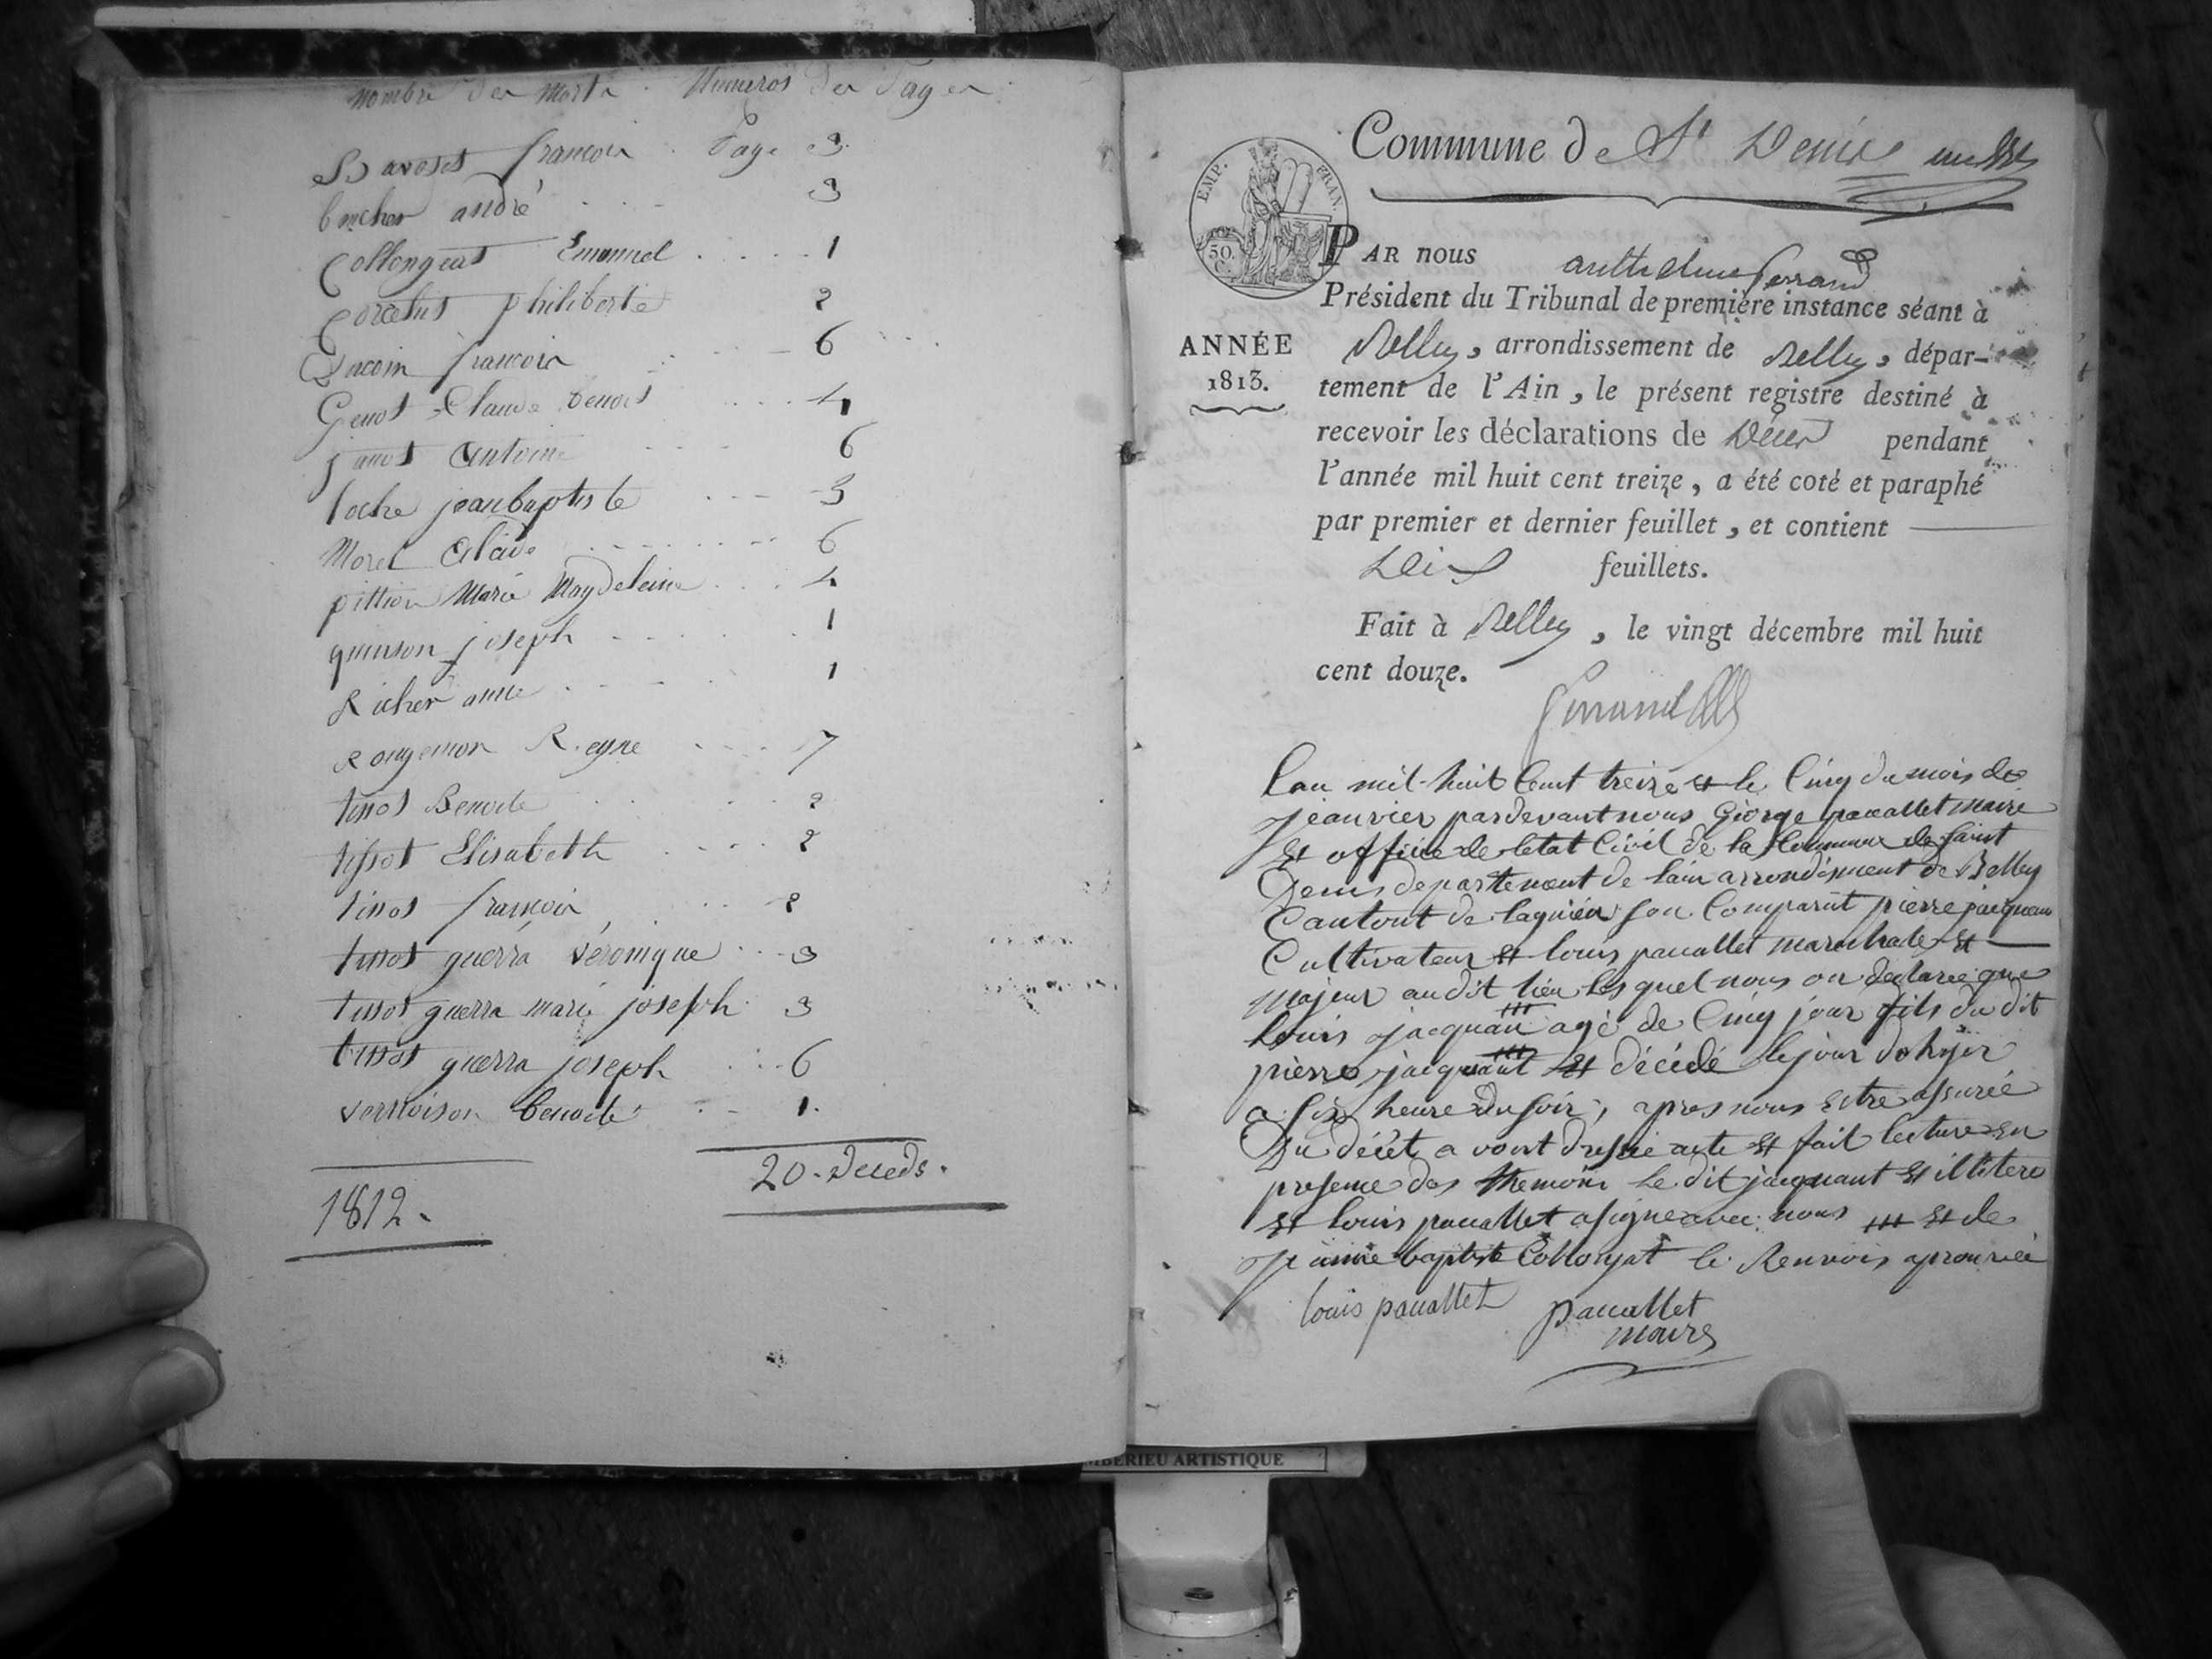 nombre des morts . Numeros des Pages
Bavoset françois . Page 3.
bucher andré . . . 3
Collongeat Emanuel . . . . . 1
philiberte 2
Jacoin françois . . . 6
Genot Claude benoit . . . . 4
janot Antoine . . . 6
loche jean baptiste . . . 3
Morel Claude . . . . . . . 6
pittion Marie Magdeleine . . . 4
quinson joseph . . . . 1
Richer anne . . . . 1
Rougemon Reyne . . . . 7
tissot Benoite . . . . 2
tissot Elisabeth . . . . 2
tissot françois . . . 2
tissot guerra véronique . . . 3
tissot guerra marie joseph 3
tissot guerra joseph . . . 6
vernoison benoite . . 1.
20. Deceds.
1812.
Commune de St Denis
EMP. FRAN.
50. C.
PAR nous anthelme ferrand
Président du Tribunal de première instance séant à
ANNÉE
1813.
Belley, arrondissement de Belley, dépar-
tement de l'Ain, le présent registre destiné à
recevoir les déclarations de Décès pendant
l'année mil huit cent treize, a été coté et paraphé
par premier et dernier feuillet, et contient
feuillets.
Fait à Belley, le vingt décembre mil huit
cent douze.
ferrand
lan mil huit Cent treize et le Cinq du mois de
jeanvier pardevant nous George paucallet maire
Et officie de letat Civil de la Commune de saint
Denis departement de lain arrondisment de Belley
Cantont de lagnieu son Comparut pierre jacquant
Cultivateur Et louis paucallet marechale Et
majeur au dit lieu les quel nous on declaree que
louis jacquan agé de Cinq jour fils du dit
pierre jacquant Et décédé le jour dohyer
a six heure du soir, apres nous Estre assurée
Du décèt a vont dressé acte Et fait lecture En
presence des themoin le dit jacquant Et illitere
Et louis paucallet a signe avec nous ttt Et de
jeanne baptiste Collonjat le Renvois aprouvée
louis paucallet paucallet
maire
MBERIEU ARTISTIQUE